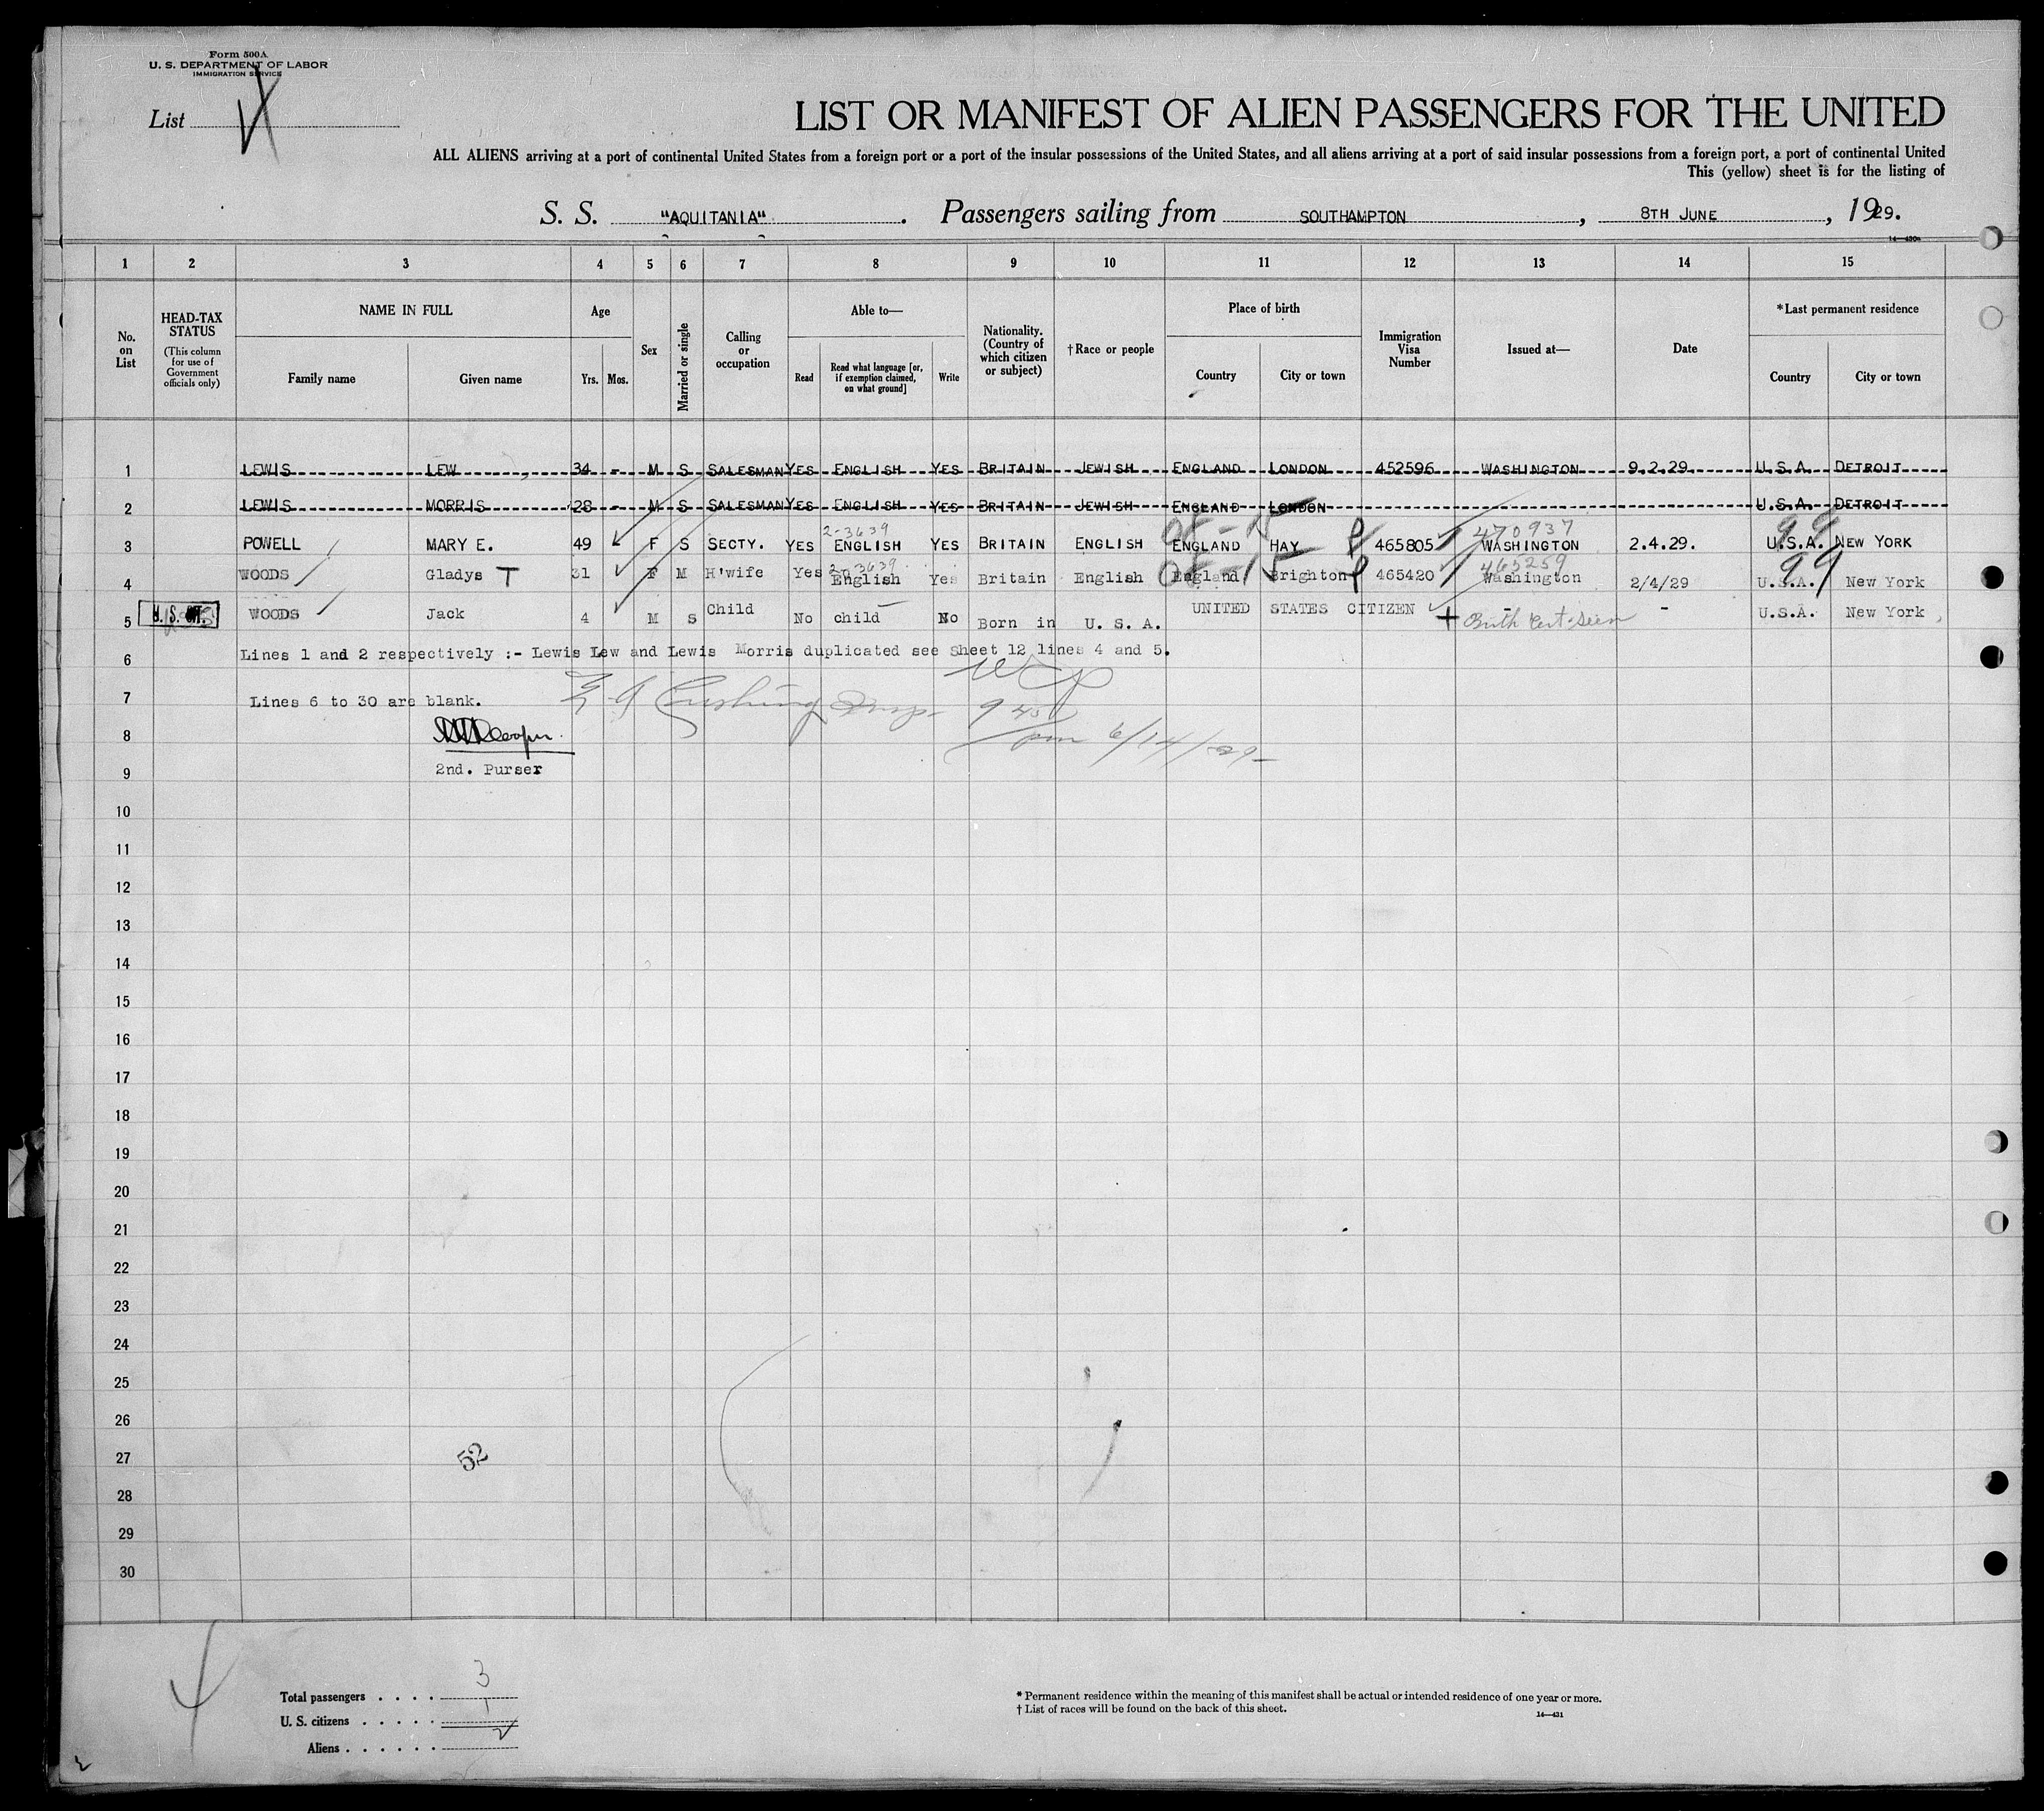 Form 500A
U. S. DEPARTMENT OF LABOR
IMMIGRATION SERVICE
List
LIST OR MANIFEST OF ALIEN PASSENGERS FOR THE UNITED
ALL ALIENS arriving at a port of continental United States from a foreign port or a port of the insular possessions of the United States, and all aliens arriving at a port of said insular possessions from a foreign port, a port of continental United
This (yellow) sheet is for the listing of
S. S. "AQUITANIA". Passengers sailing from SOUTHAMPTON, 8TH JUNE, 1929.
14—430a
1 2 3 4 5 6 7 8 9 10 11 12 13 14 15
No. on List
HEAD-TAX STATUS (This column for use of Government officials only)
NAME IN FULL
Family name Given name
Age
Yrs. Mos.
Sex
Married or single
Calling or occupation
Able to—
Read Read what language [or, if exemption claimed, on what ground] Write
Nationality. (Country of which citizen or subject)
†Race or people
Place of birth
Country City or town
Immigration Visa Number
Issued at—
Date
*Last permanent residence
Country City or town
1 LEWIS LEW 34 - M S SALESMAN YES ENGLISH YES BRITAIN JEWISH ENGLAND LONDON 452596 WASHINGTON 9.2.29. U.S.A. DETROIT
2 LEWIS MORRIS 28 - M S SALESMAN YES ENGLISH YES BRITAIN JEWISH ENGLAND LONDON U.S.A. DETROIT
2-3639 470937 99
3 POWELL MARY E. 49 F S SECTY. YES ENGLISH YES BRITAIN ENGLISH ENGLAND HAY 465805 WASHINGTON 2.4.29. U.S.A. NEW YORK
2-3639 465259 99
4 WOODS Gladys T 31 F M H'wife Yes English Yes Britain English England Brighton 465420 Washington 2/4/29 U.S.A. New York
5 U. S. CIT. WOODS Jack 4 M S Child No child No Born in U. S. A. UNITED STATES CITIZEN - Birth Cert. seen - U.S.A. New York
6 Lines 1 and 2 respectively :- Lewis Lew and Lewis Morris duplicated see Sheet 12 lines 4 and 5.
7 Lines 6 to 30 are blank. Cushing Insp. 9 45
8 pm 6/14/29
9 2nd. Purser
10
11
12
13
14
15
16
17
18
19
20
21
22
23
24
25
26
27 52
28
29
30
Total passengers . . . . 3
U. S. citizens . . . . . 1
Aliens . . . . . . 2
* Permanent residence within the meaning of this manifest shall be actual or intended residence of one year or more.
† List of races will be found on the back of this sheet.
14—431